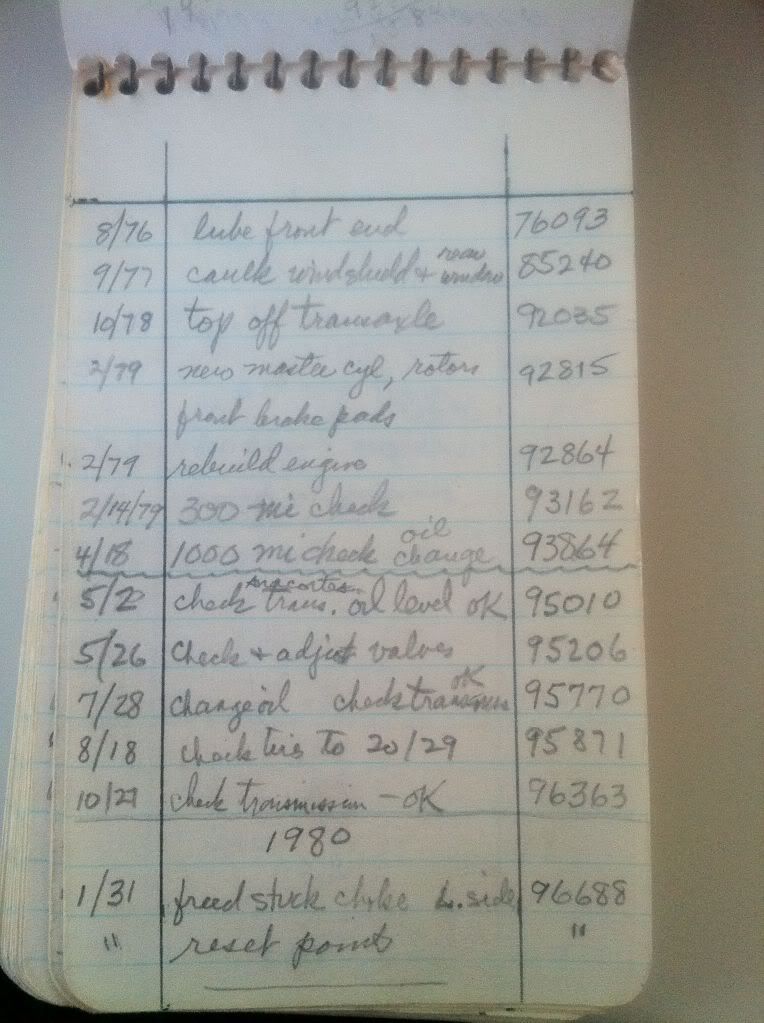 8/76 lube front end 76093
9/77 caulk windshield + rear window 85240
10/78 top off transaxle 92035
2/79 new master cyl, rotors 92815
front brake pads
2/79 rebuild engine 92864
2/14/79 300 mi check 93162
4/18 1000 mi check oil change 93864
anacortes
5/2 check trans. oil level OK 95010
5/26 check + adjust valves 95206
7/28 change oil check OK 95770
8/18 check tires to 20/29 95871
10/27 check transmission - OK 96363
1980
1/31 freed stuck choke L. side 96688
" reset points "